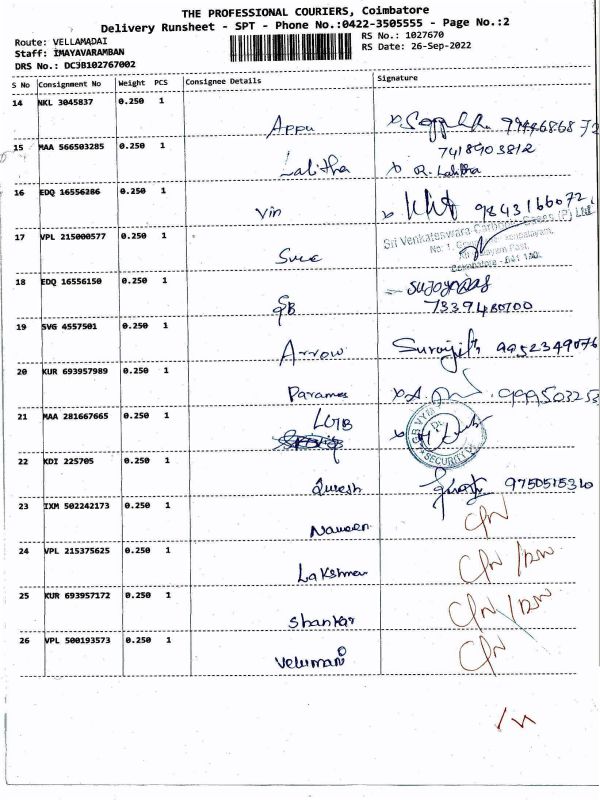 THE PROFESSIONAL COURIERS, Coimbatore
Delivery Runsheet - SPT - Phone No.:0422-3505555 - Page No.:2
Route: VELLAMADAI RS No.: 1027670
Staff: IMAYAVARAMBAN RS Date: 26-Sep-2022
DRS No.: DC3B102767002
S No Consignment No Weight PCS Consignee Details Signature
14 NKL 3045837 0.250 1
Appu
15 MAA 566503285 0.250 1 7418903812
Lalitha R. Lalitha
16 EDQ 16556286 0.250 1
Vin 9843166072
17 VPL 215000577 0.250 1 Sri Venkateswara Carbonic Gases (P) Ltd
Coimbatore - 641
18 EDQ 16556150 0.250 1
GB 7339480700
19 SVG 4557501 0.250 1
Arrow Surajith 9952349076
20 KUR 693957989 0.250 1
Parames
21 MAA 281667665 0.250 1 LGB
SECURITY
22 KDI 225705 0.250 1
Suresh 9750515310
23 IXM 502242173 0.250 1
Naveen
24 VPL 215375625 0.250 1
Lakshman
25 KUR 693957172 0.250 1
Shankar
26 VPL 500193573 0.250 1
Velumani